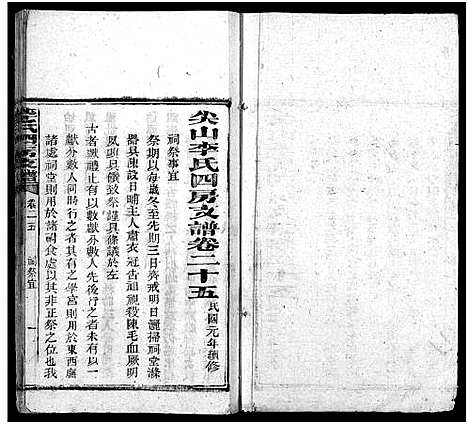 尖山李氏四房支譜卷二十五 民國元年續修
祠祭事宜
祭期以每歲冬至先期三日齊戒明日灑掃祠堂滌
器具陳設日晡主人肅衣冠告祖視殺陳毛血厥明
夙興具饌致祭謹具條議於左
古者祼禮止有以數獻分數人先後行之者未有以一
獻分數人同時行之者其有之學宮則用於東西廡
諸處祠堂則用於諸祠食處以其非正祭之位也我
李氏四房支譜
卷二五
祠祭宜
一